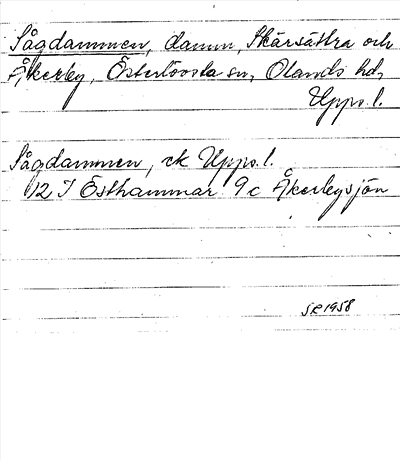 Sågdammen, damm, Skärsättra och
Åkerby, Österlövsta sn, Olands hd,
Upps. l.
Sågdammen, ek Upps. l.
12 I Östhammar 9 c Åkerbysjön
SR 1958